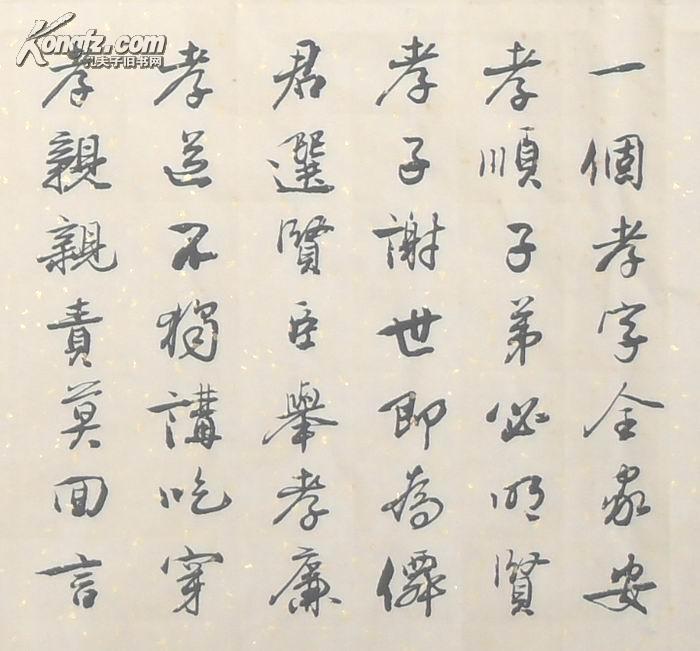 一個孝字全家安
孝順子弟必明賢
孝子謝世即為僊
君選賢臣舉孝廉
孝道不獨講吃穿
孝親親責莫回言
Kongfz.com
孔夫子旧书网